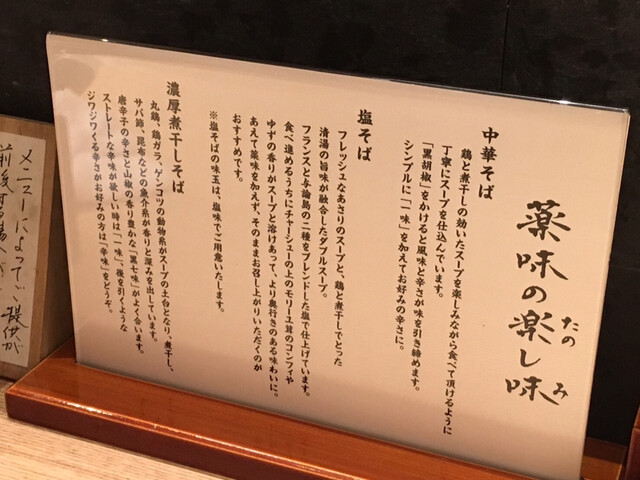 薬味の楽し味
たの
み
中華そば
鶏と煮干しの効いたスープを楽しみながら食べて頂けるように
丁寧にスープを仕込んでいます。
「黒胡椒」をかけると風味と辛さが味を引き締めます。
シンプルに「一味」を加えてお好みの辛さに。
塩そば
フレッシュなあさりのスープと、鶏と煮干しでとった
清湯の旨味が融合したダブルスープ。
フランスと与論島の二種をブレンドした塩で仕上げています。
食べ進めるうちにチャーシューの上のモリーユ茸のコンフィや
ゆずの香りがスープと溶けあって、より奥行きのある味わいに。
あえて薬味を加えず、そのままお召し上がりいただくのが
おすすめです。
※塩そばの味玉は、塩味でご用意いたします。
濃厚煮干しそば
丸鶏、鶏ガラ、ゲンコツの動物系がスープの土台となり、煮干し、
サバ節、昆布などの魚介系が香りと深みを出しています。
唐辛子の辛さと山椒の香り豊かな「黒七味」がよく合います。
ストレートな辛味が欲しい時は「一味」、後を引くような
ジワジワくる辛さがお好みの方は「辛味」をどうぞ。
メニューによってご提供が
前後する場合が